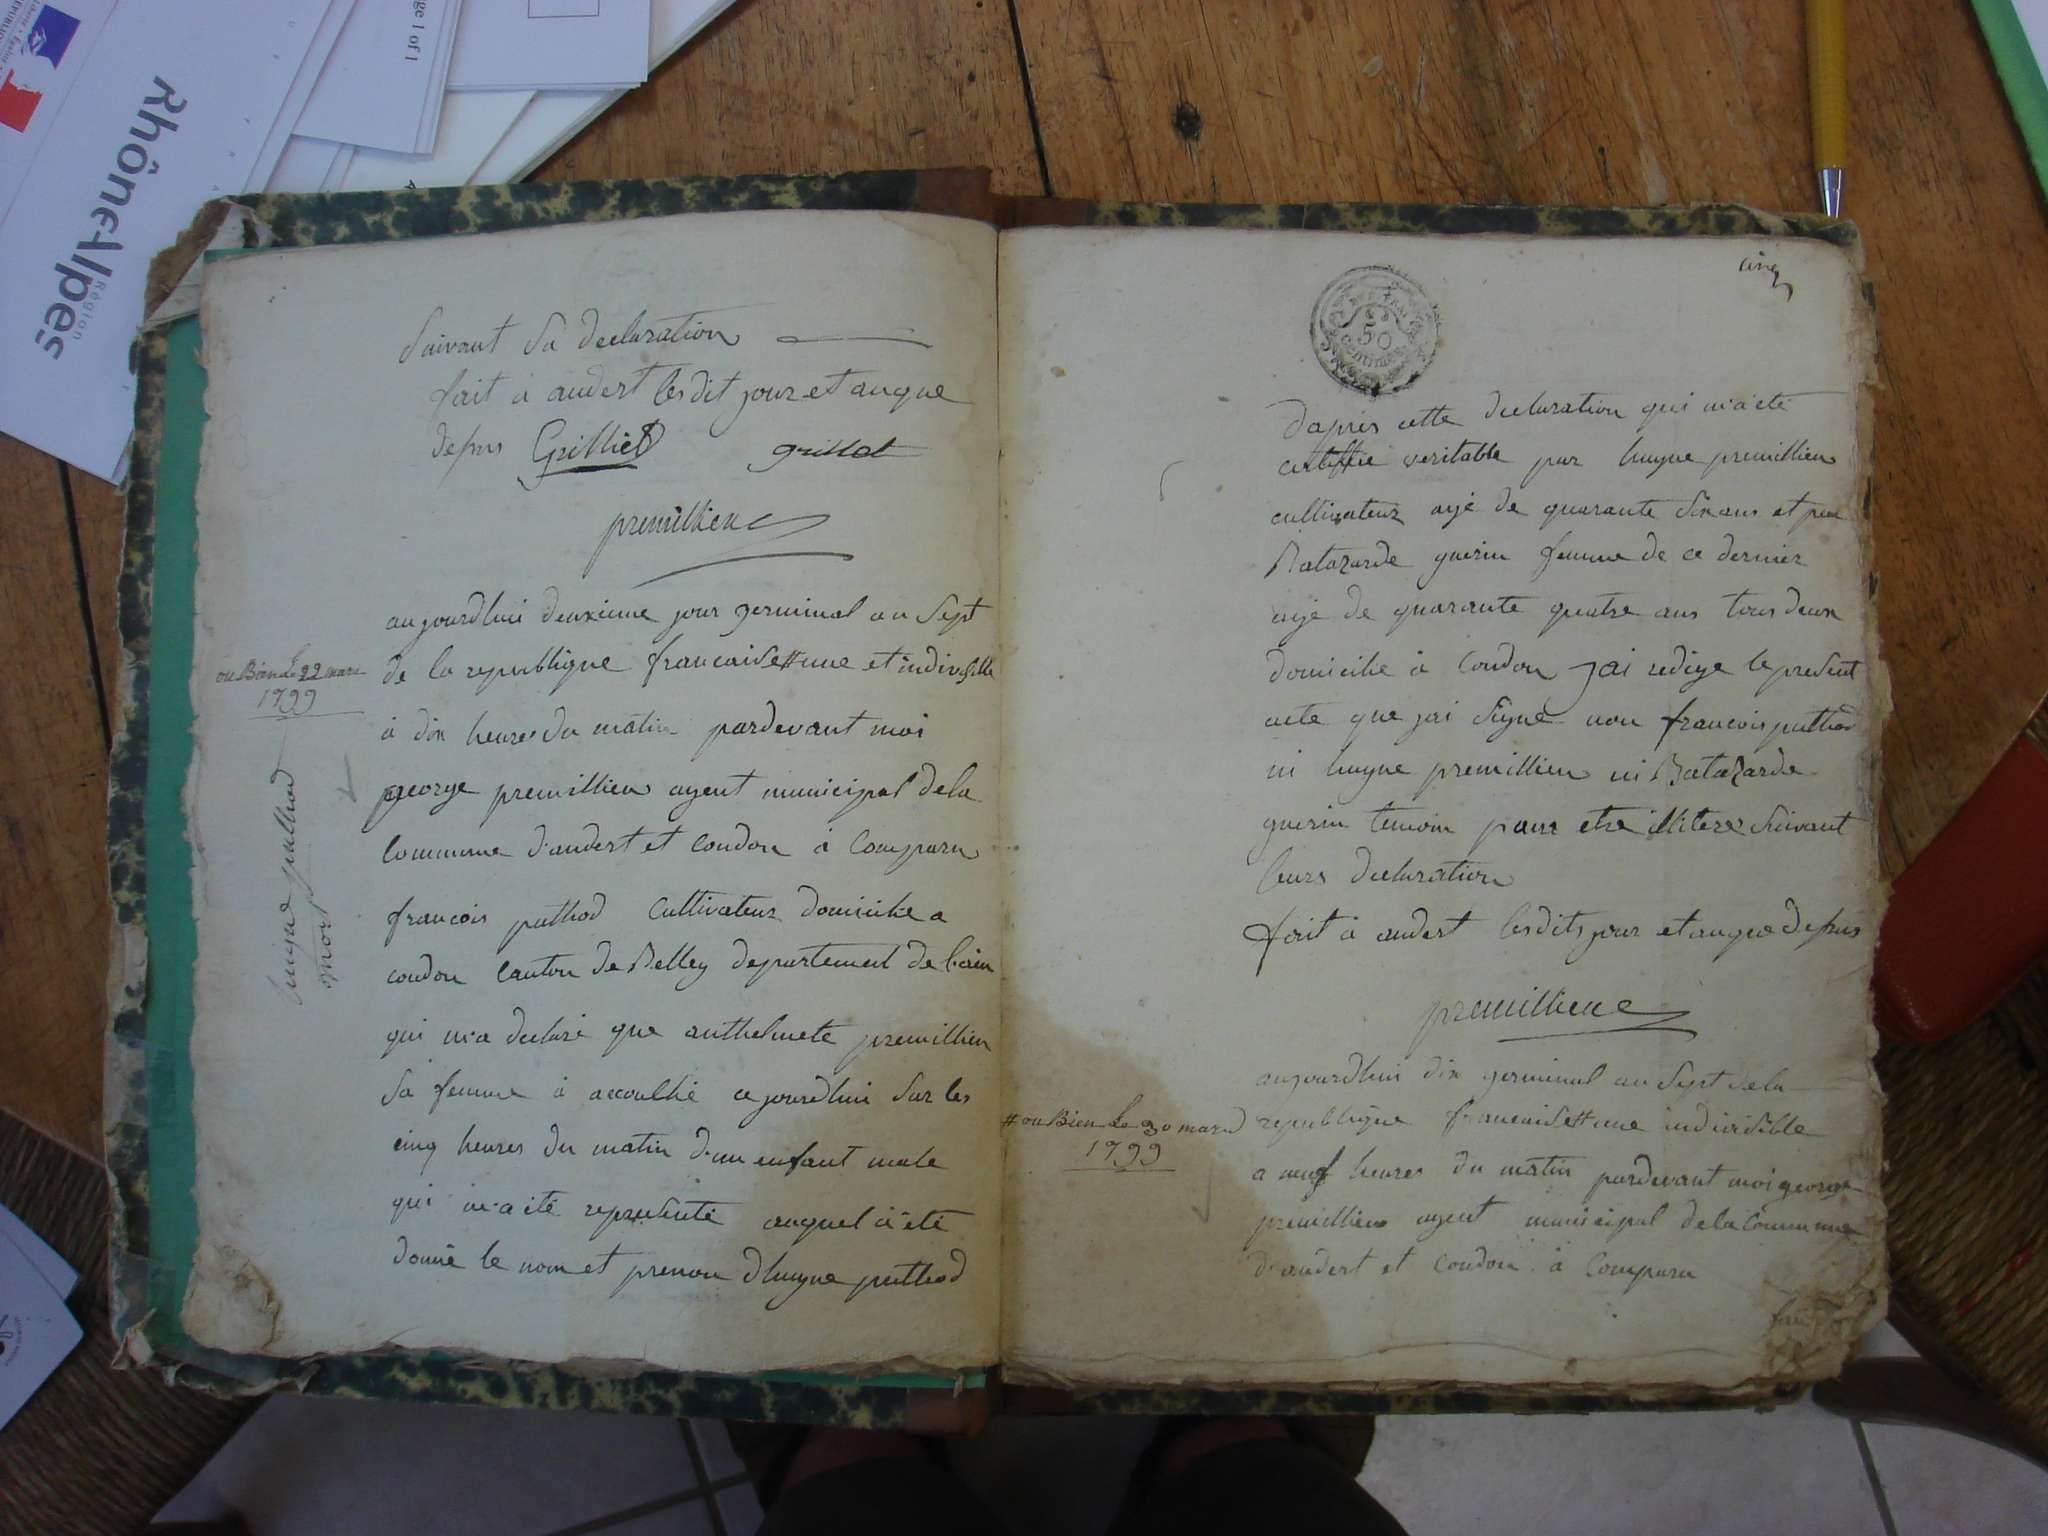 Rhône-Alpes
Région
age 1 of 1
Suivant Sa declaration
fait a andert lesdit jour et anque
defsus Grilliet grillot
premillieu
aujourdhui deuxieme jour germinal an Sept
de la republique francaise # une et indivisible
ou Bien le 22 mars
1799
à dix heures du matin pardevant moi
george premillieu agent municipal dela
commune d'andert et Condon à Comparu
françois puthod Cultivateur domicilie a
condon Canton de Belley departement de lain
qui m'a declaré que anthelmete premillieu
Sa femme à accouthé cejourdhui sur les
cinq heures du matin d'un enfant male
qui m'a été representé auquel à été
donné le nom et prenon dhuyne puthod
huyne puthod
mort
cinq
50
centimes
dapres cette declaration qui m'a été
certiffié veritable par huyne premillieu
cultivateur agé de quarante Six ans et par
Batazarde guerin femme de ce dernier
agé de quarante quatre ans tous deux
domicilié à Condon jai redige le present
acte que jai Signé non francois puthod
ni huyne premillieu ni Batazarde
guerin temoin pour etre illiteré Suivant
leurs declaration
fait à andert lesdits jour et anque defsus
premillieu
aujourdhui dix germinal an Sept dela
republique francaise # une indivisible
# ou Bien le 30 mars
1799
a neuf heures du matin pardevant moi george
premillieu agent municipal dela Commune
d'andert et Condon à Comparu